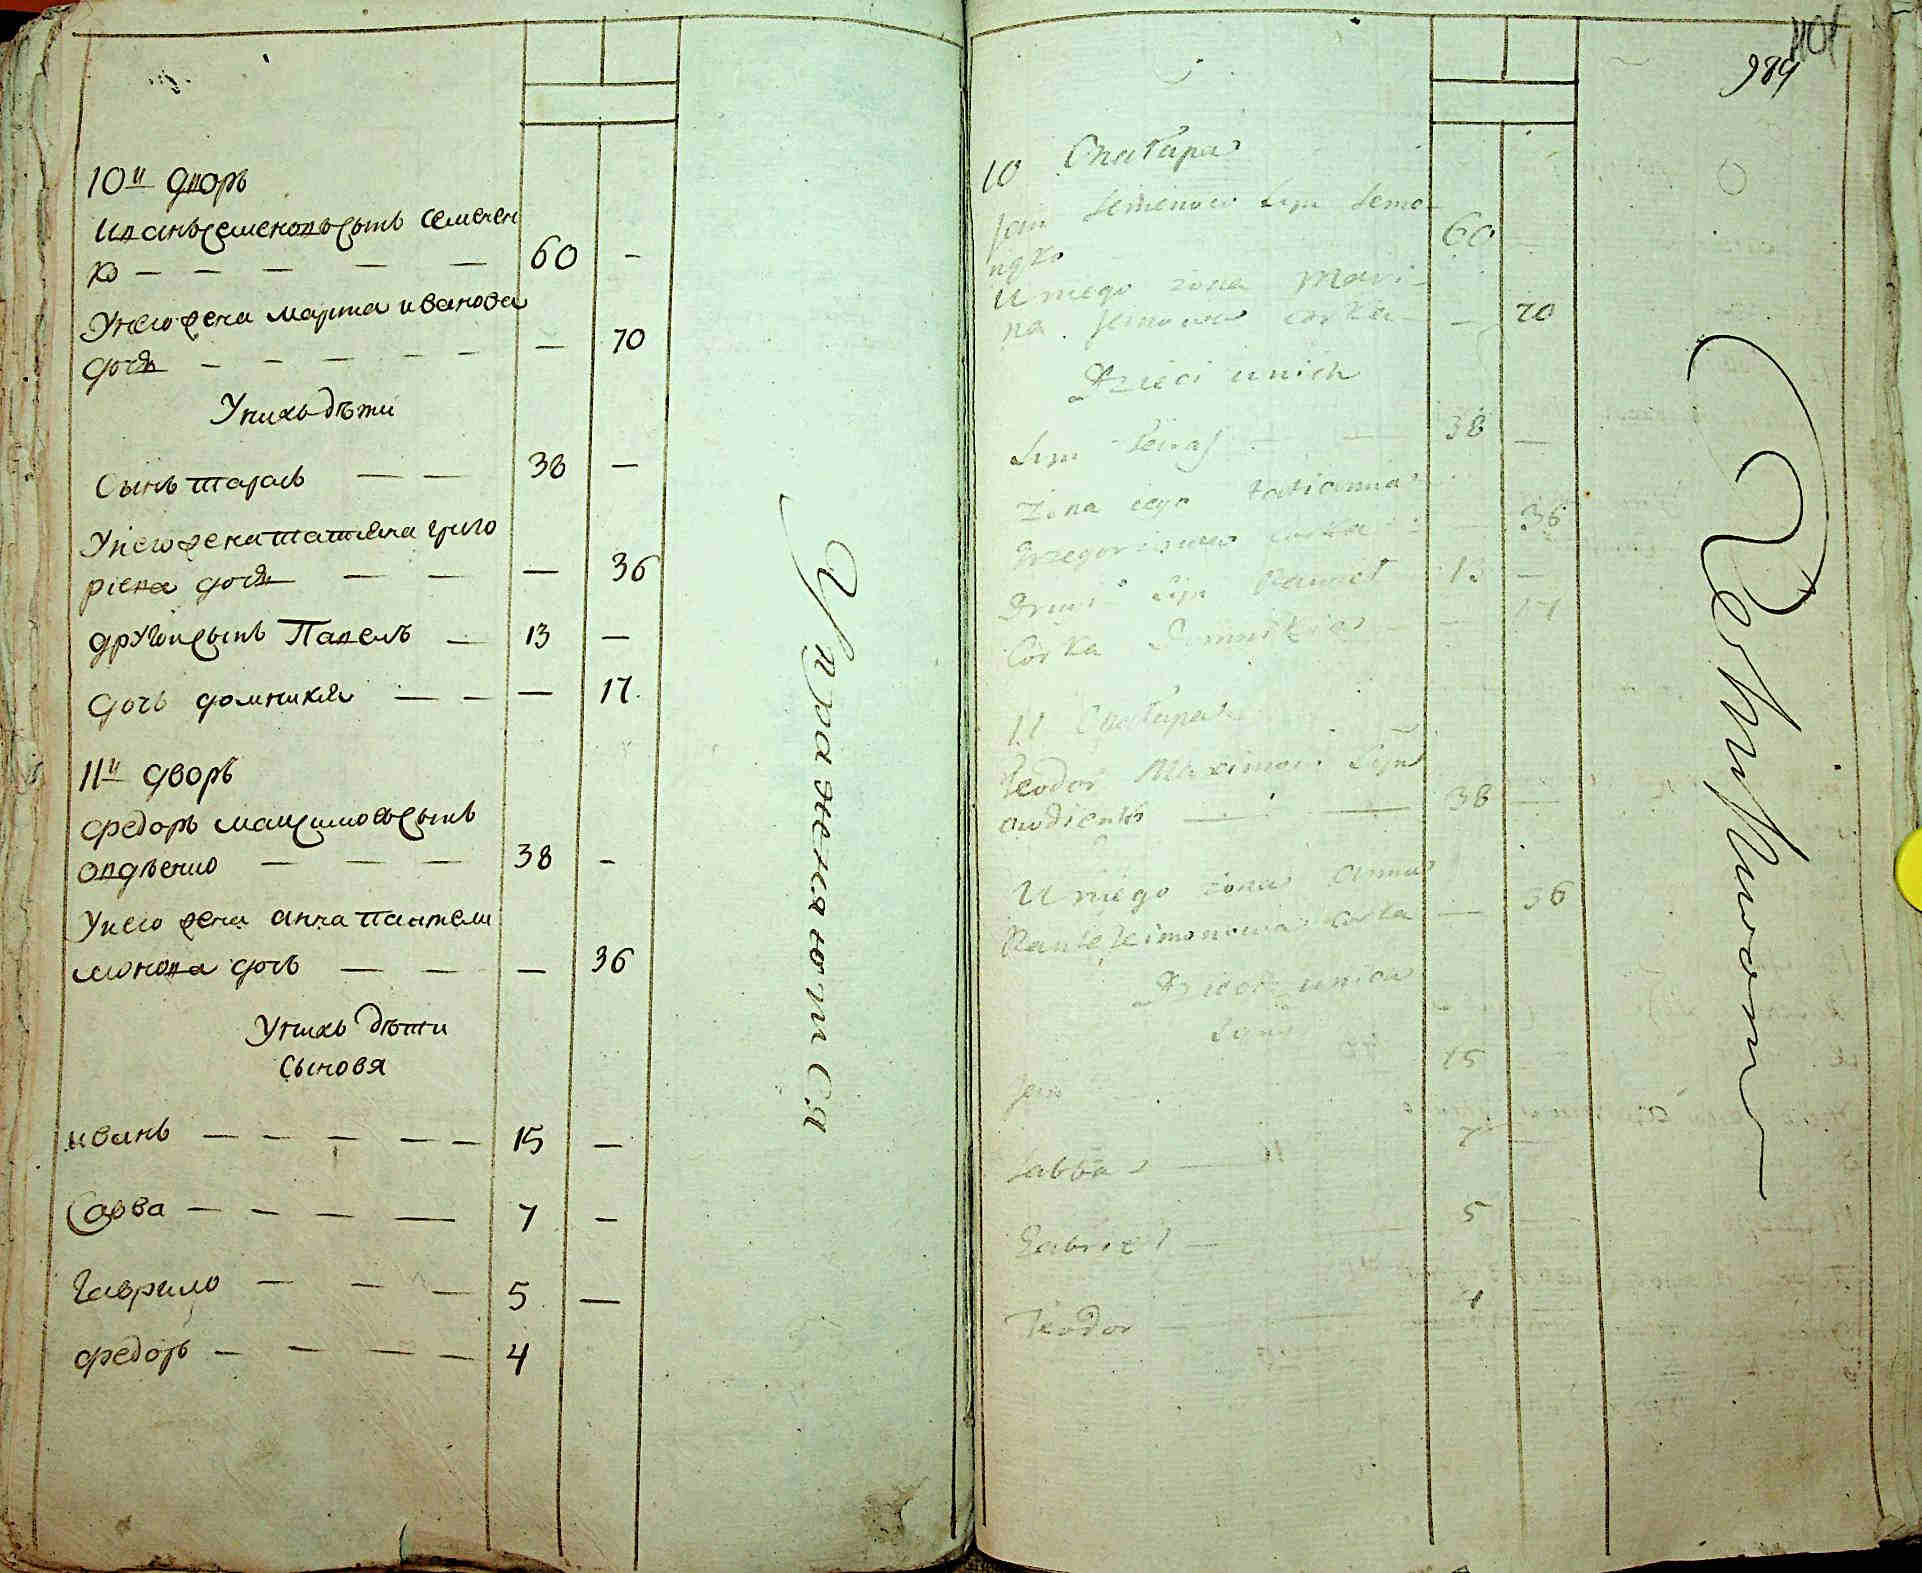 10й дворъ
иванъ семеновъ сынъ семенен
ко — — — — — 60 —
Унего жена марта иванова
дочь — — — — — — 70
Унихъ дѣти
Сынъ тарасъ — — 38 —
Унего жена татіяна григо
риева дочь — — — 36
другой сынъ Павелъ — 13 —
дочь домникія — — — 17
11й дворъ
федоръ максимовъ сынъ
авдѣенко — — — 38 —
Унего жена анна пантели
монова дочь — — — 36
Унихъ дѣти
Сыновя
иванъ — — — — — 15 —
Савва — — — — 7 —
Гаврило — — — 5 —
федоръ — — — — 4
Упражняются
989
10 Chałupa
Jan Semenow Syn Seme-
nęko 60
U niego zona Mari-
na corka — 70
Dzieci u nich
Syn Taras — — 38 —
Zona iego tatianna
Grzegorzowa corka — 36
Drugi Syn Pawieł 13 —
Corka Domnikia — — 17
11 Chałupa
Teodor Maximow Syn
— — 38 —
U niego zona Anna
Panteleimonowa corka — 36
Dzieci u nich
Syny
Jan 15
Sabba — 7
Gabriel — 5
Teodor — 4